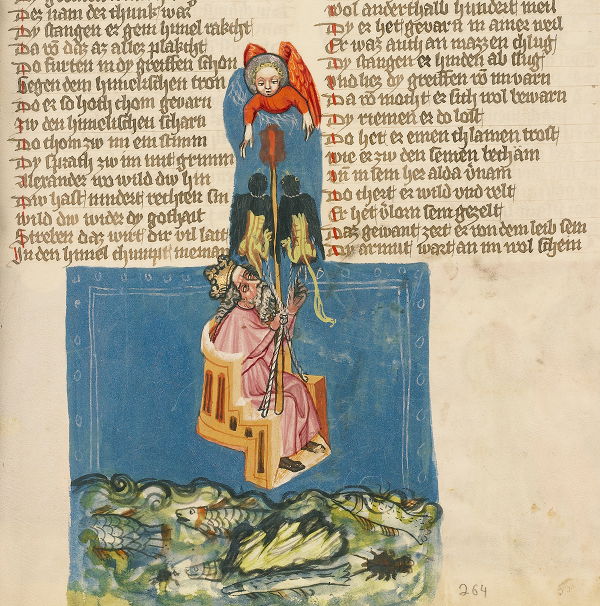 Der nam der chunk war
Dy stangen er gem himel rakcht
Da vō daz az allez plakcht
Do furten in dy greiffen schon
Gegen dem himelischen tron
Do er so hoch chom gevarn
Zw den himelischen scharn
Do chom zw im ein stimm
Dy sprach zw im mit grimm
Alexander wo wild dw hin
Dw hast nindert rechten sin
Wild dw wider dy gothait
Streben daz wirt dir vil lait
In den himel chumpt nieman
Wol anderthalb hundert meil
Dy er het gevarn in ainer weil
Er waz auch an mazzen chlug
Dy stangen er hinden ab slug
Und hez dy greiffen vō im varn
Da vō mocht er sich wol bewarn
Dy riemen er do lost
Do het er einen chlamen trost
Wie er zw den seinen bechäm
In in sem her alda vnam
Do chert er wild und velt
Er het vlorn sem gezelt
Daz gewant zert er von dem leib sein
Dy armut wart an im wol schein
264